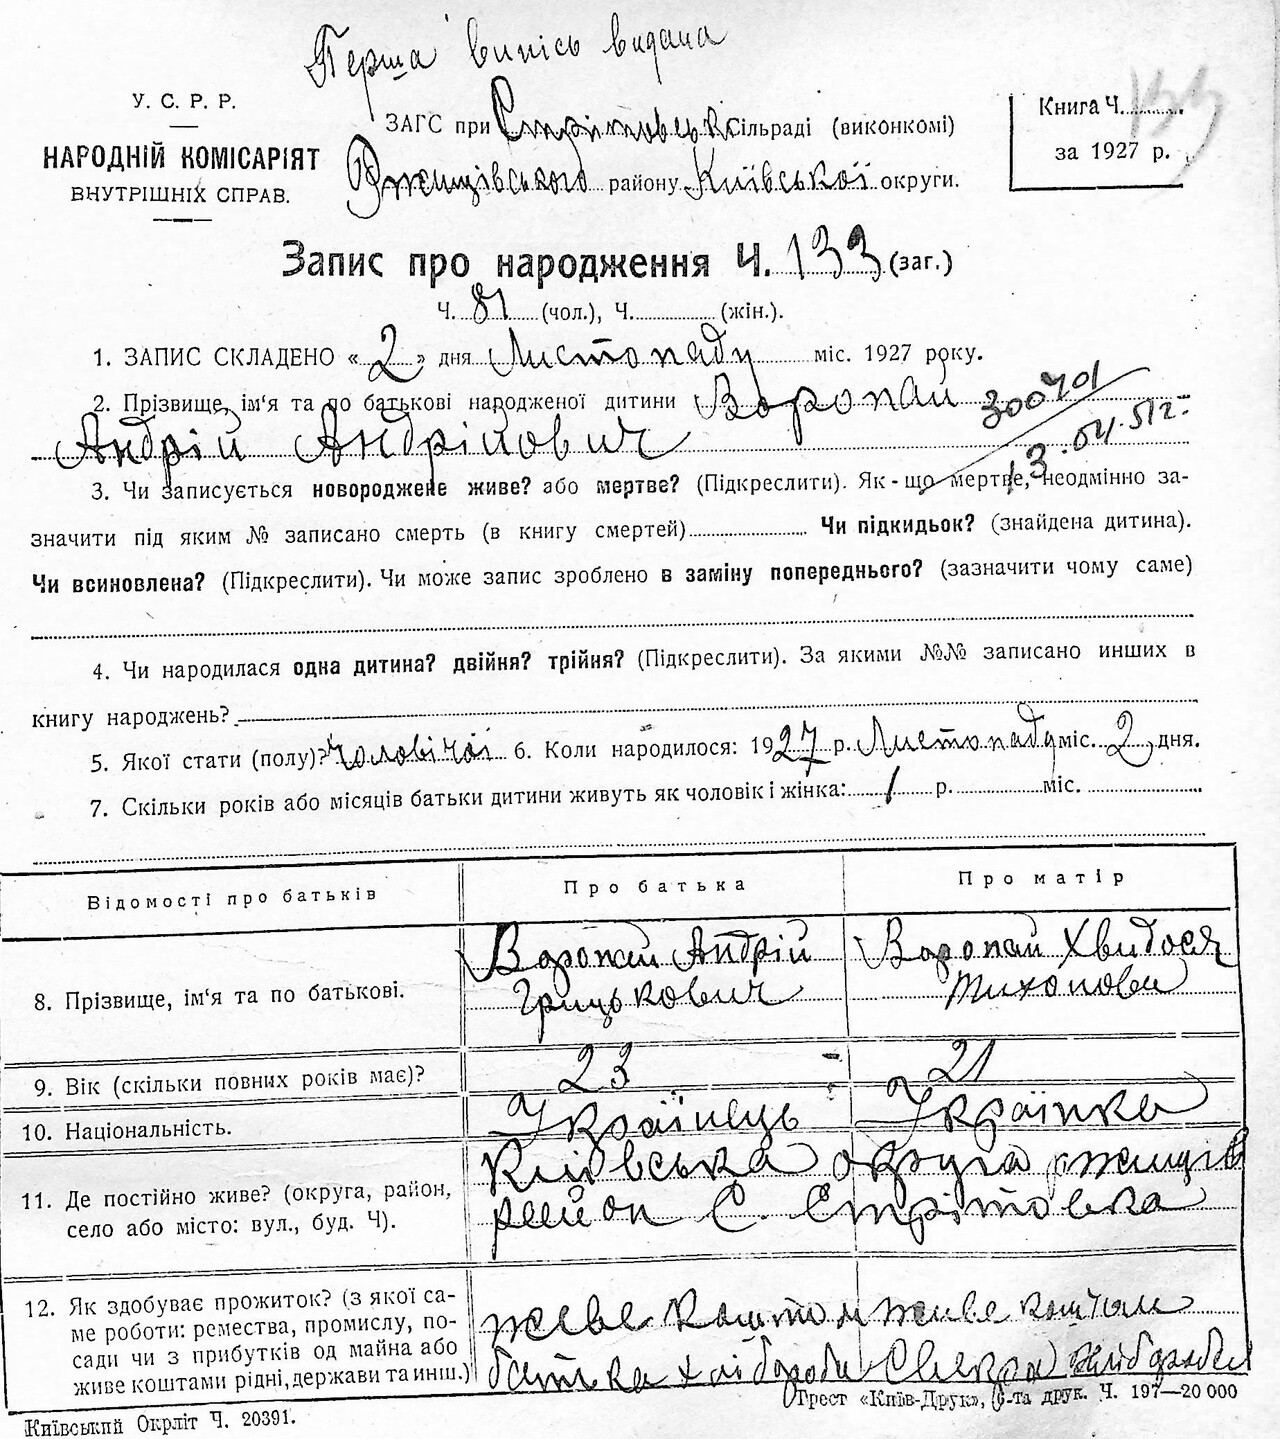 Перша випісь видана
У. С. Р. Р.
НАРОДНІЙ КОМІСАРІЯТ
ВНУТРІШНІХ СПРАВ.
ЗАГС при Стрітовськ сільраді (виконкомі)
Ржищівського району Київської округи.
Книга Ч. 133
за 1927 р.
Запис про народження Ч. 133 (заг.)
Ч. 81 (чол.), Ч. (жін.).
1. ЗАПИС СКЛАДЕНО « 2 » дня Листопаду міс. 1927 року.
2. Прізвище, ім‘я та по батькові народженої дитини Воропай
Андрій Андрійович
300401
13.04.51г.
3. Чи записується новороджене живе? або мертве? (Підкреслити). Як-що мертве, неодмінно за-
значити під яким № записано смерть (в книгу смертей) Чи підкидьок? (знайдена дитина).
Чи всиновлена? (Підкреслити). Чи може запис зроблено в заміну попереднього? (зазначити чому саме)
4. Чи народилася одна дитина? двійня? трійня? (Підкреслити). За якими №№ записано инших в
книгу народжень?
5. Якої стати (полу)? чоловічої 6. Коли народилося: 1927 р. Листопаду міс. 2 дня.
7. Скільки років або місяців батьки дитини живуть як чоловік і жінка: 1 р. міс.
Відомості про батьків
Про батька
Про матір
8. Прізвище, ім‘я та по батькові.
Воропай Андрій
Грицькович
Воропай Хвидося
Тихонова
9. Вік (скільки повних років має)?
23
21
10. Національність.
Українець
Українка
11. Де постійно живе? (округа, район,
село або місто: вул., буд. Ч).
Київська округа Ржищів
район С. Стрітовка
12. Як здобуває прожиток? (з якої са-
ме роботи: ремества, промислу, по-
сади чи з прибутків од майна або
живе коштами рідні, держави та инш.)
живе коштом
батька хлібороба
живе коштам
Свекра хлібороба
Київський Окрліт Ч. 20391.
Трест «Київ-Друк», 6-та друк. Ч. 197—20 000